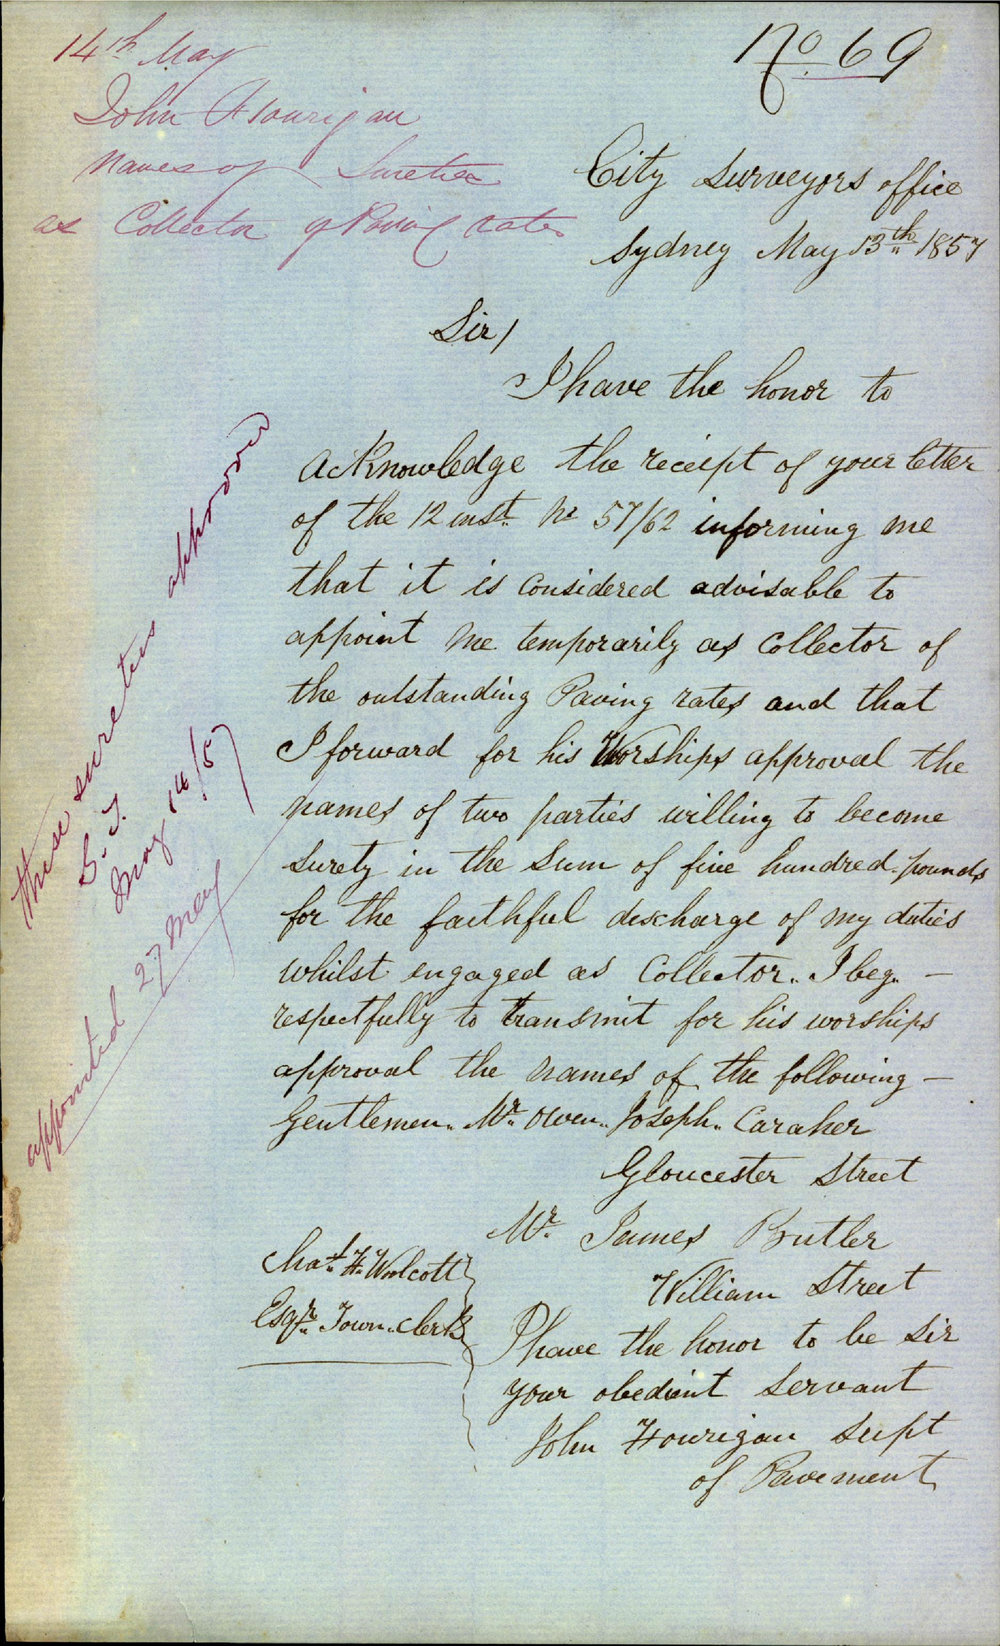 No 69
14th May
John Hourigan
names of Sureties
as Collector of Paving rates
City Surveyors office
Sydney May 13th 1857
Sir/
I have the honor to
acknowledge the receipt of your letter
of the 12 inst. No 57/62 informing me
that it is considered advisable to
appoint me temporarily as Collector of
the outstanding Paving rates and that
I forward for his Worships approval the
names of two parties willing to become
surety in the Sum of five hundred pounds
for the faithful discharge of my duties
whilst engaged as Collector. I beg. –
respectfully to transmit for his worships
approval the names of the following –
Gentlemen. Mr. Owen. Joseph. Caraher
Gloucester Street
Mr. James Butler
William Street
I have the honor to be Sir
your obedient Servant
John Hourigan Supt
of Pavement
Chas. H. Woolcott
Esqr. Town. Clerk
these sureties approved
May 14/57
appointed 27 May